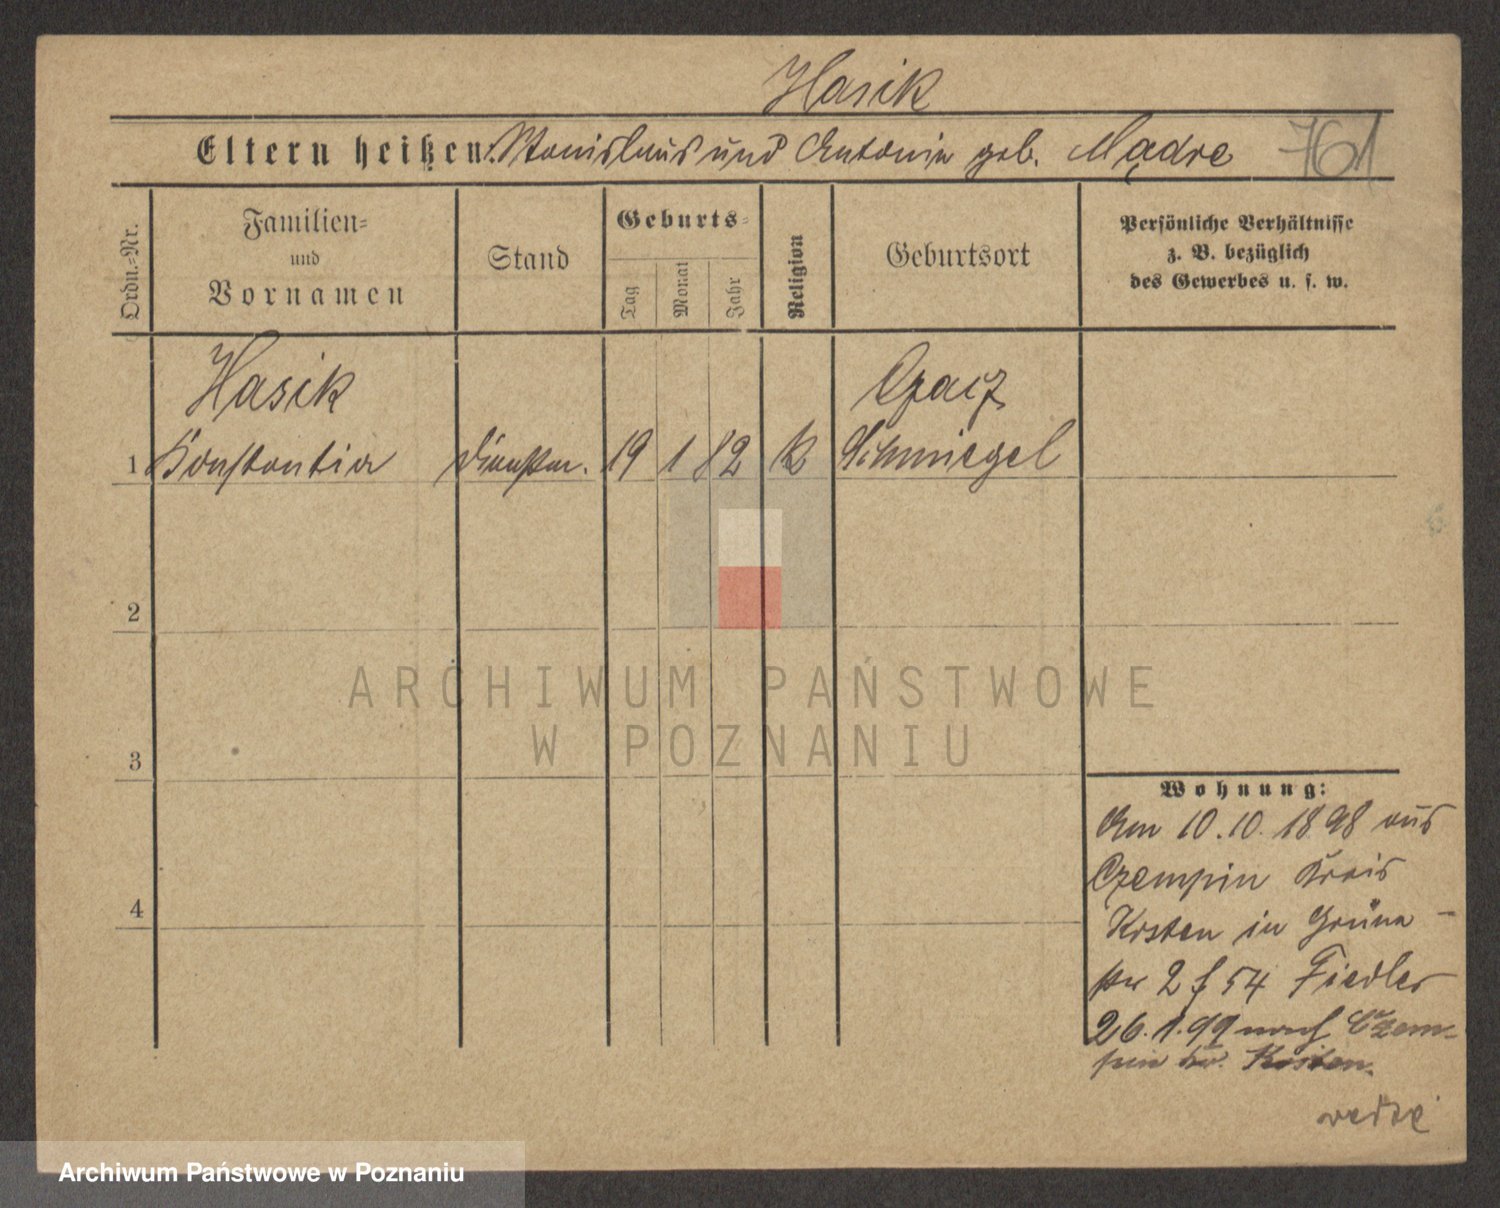 Hasik
Eltern heißen: Stanislaus und Antonia geb. Mądre 761
Ordn.=Nr.
Familien=
und
Vornamen
Stand
Geburts=
Tag
Monat
Jahr
Religion
Geburtsort
Persönliche Verhältnisse
z. B. bezüglich
des Gewerbes u. s. w.
Hasik Czacz
1 Konstantia Dienstm. 19 1 82 k Schmiegel
2
3
4
Wohnung:
Am 10.10.1898 aus
Czempin Kreis
Kosten in Grüne-
str 2 f 54 Fiedler
26.1.99 nach Czem-
pin Kr. Kosten.
ARCHIWUM PAŃSTWOWE
W POZNANIU
Archiwum Państwowe w Poznaniu